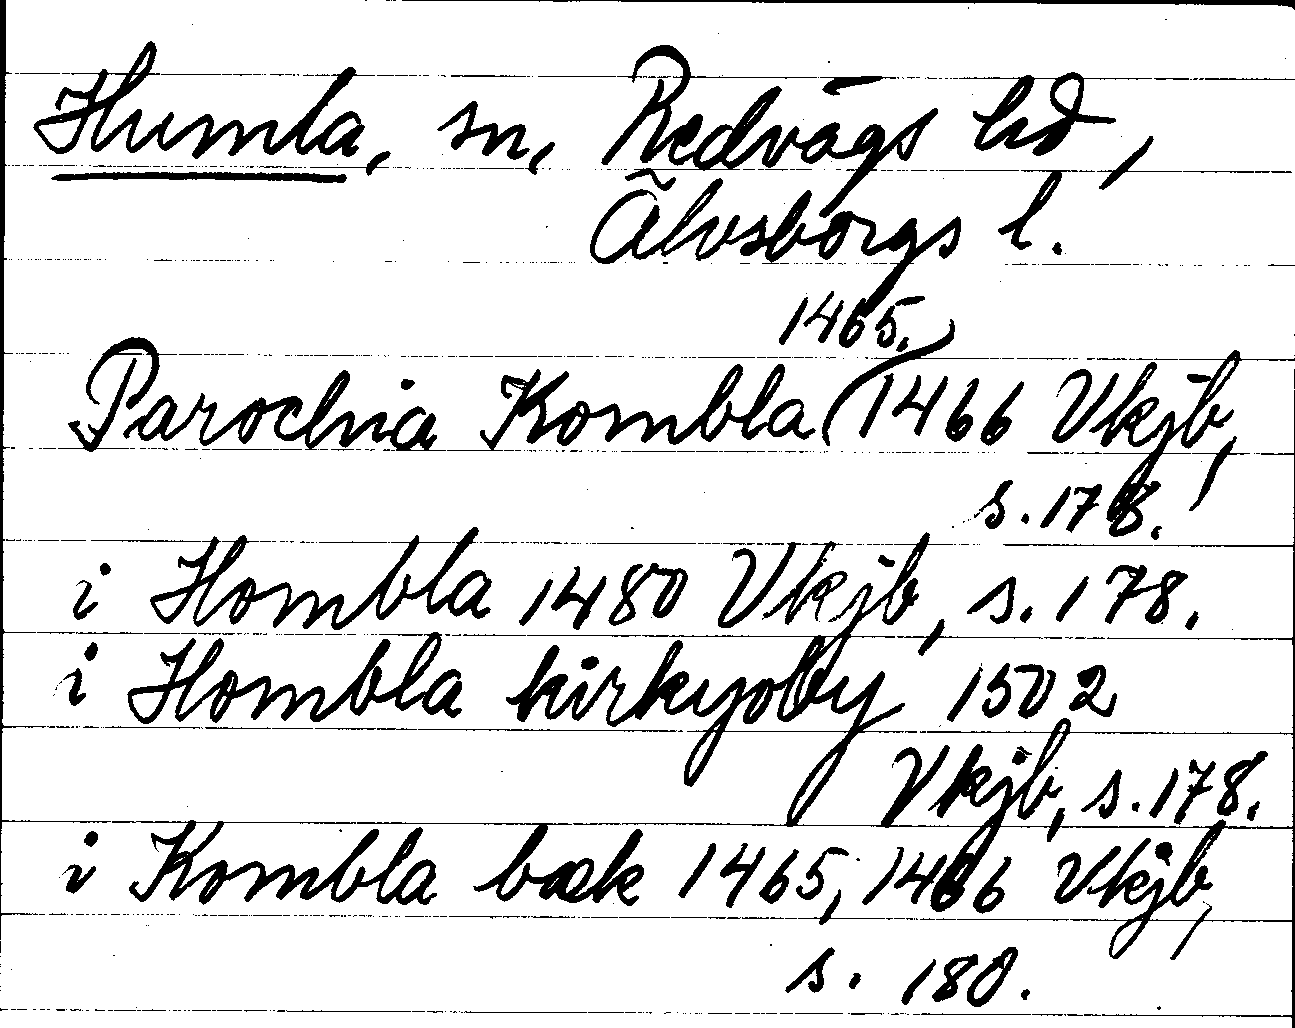 Humla, sn, Redvägs hd,
Älvsborgs l.
1465.
Parochia Kombla 1466 Vkjb,
s. 178.
i Hombla 1480 Vkjb, s. 178.
i Hombla kirkyoby 1502
Vkjb, s. 178.
i Kombla bæk 1465, 1466 Vkjb,
s. 180.